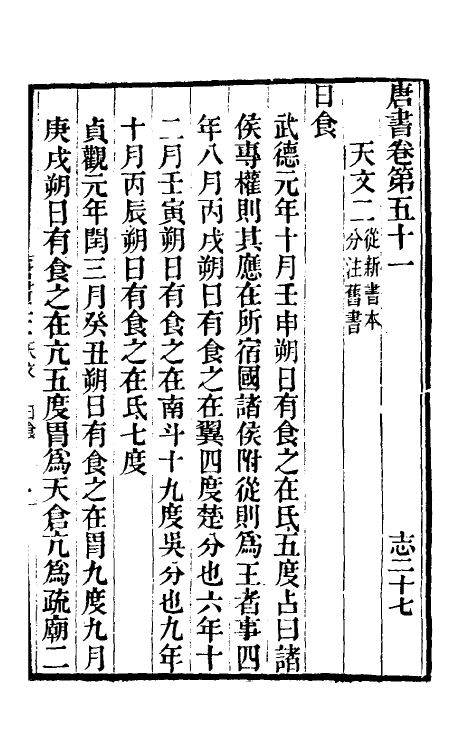 唐書卷第五十一　志二十七
天文二從新書本分注舊書
日食
武德元年十月壬申朔日有食之在氐五度占曰諸
侯專權則其應在所宿國諸侯附從則爲王者事四
年八月丙戌朔日有食之在翼四度楚分也六年十
二月壬寅朔日有食之在南斗十九度吳分也九年
十月丙辰朔日有食之在氐七度
貞觀元年閏三月癸丑朔日有食之在胃九度九月
庚戌朔日有食之在亢五度胃爲天倉亢爲疏廟二